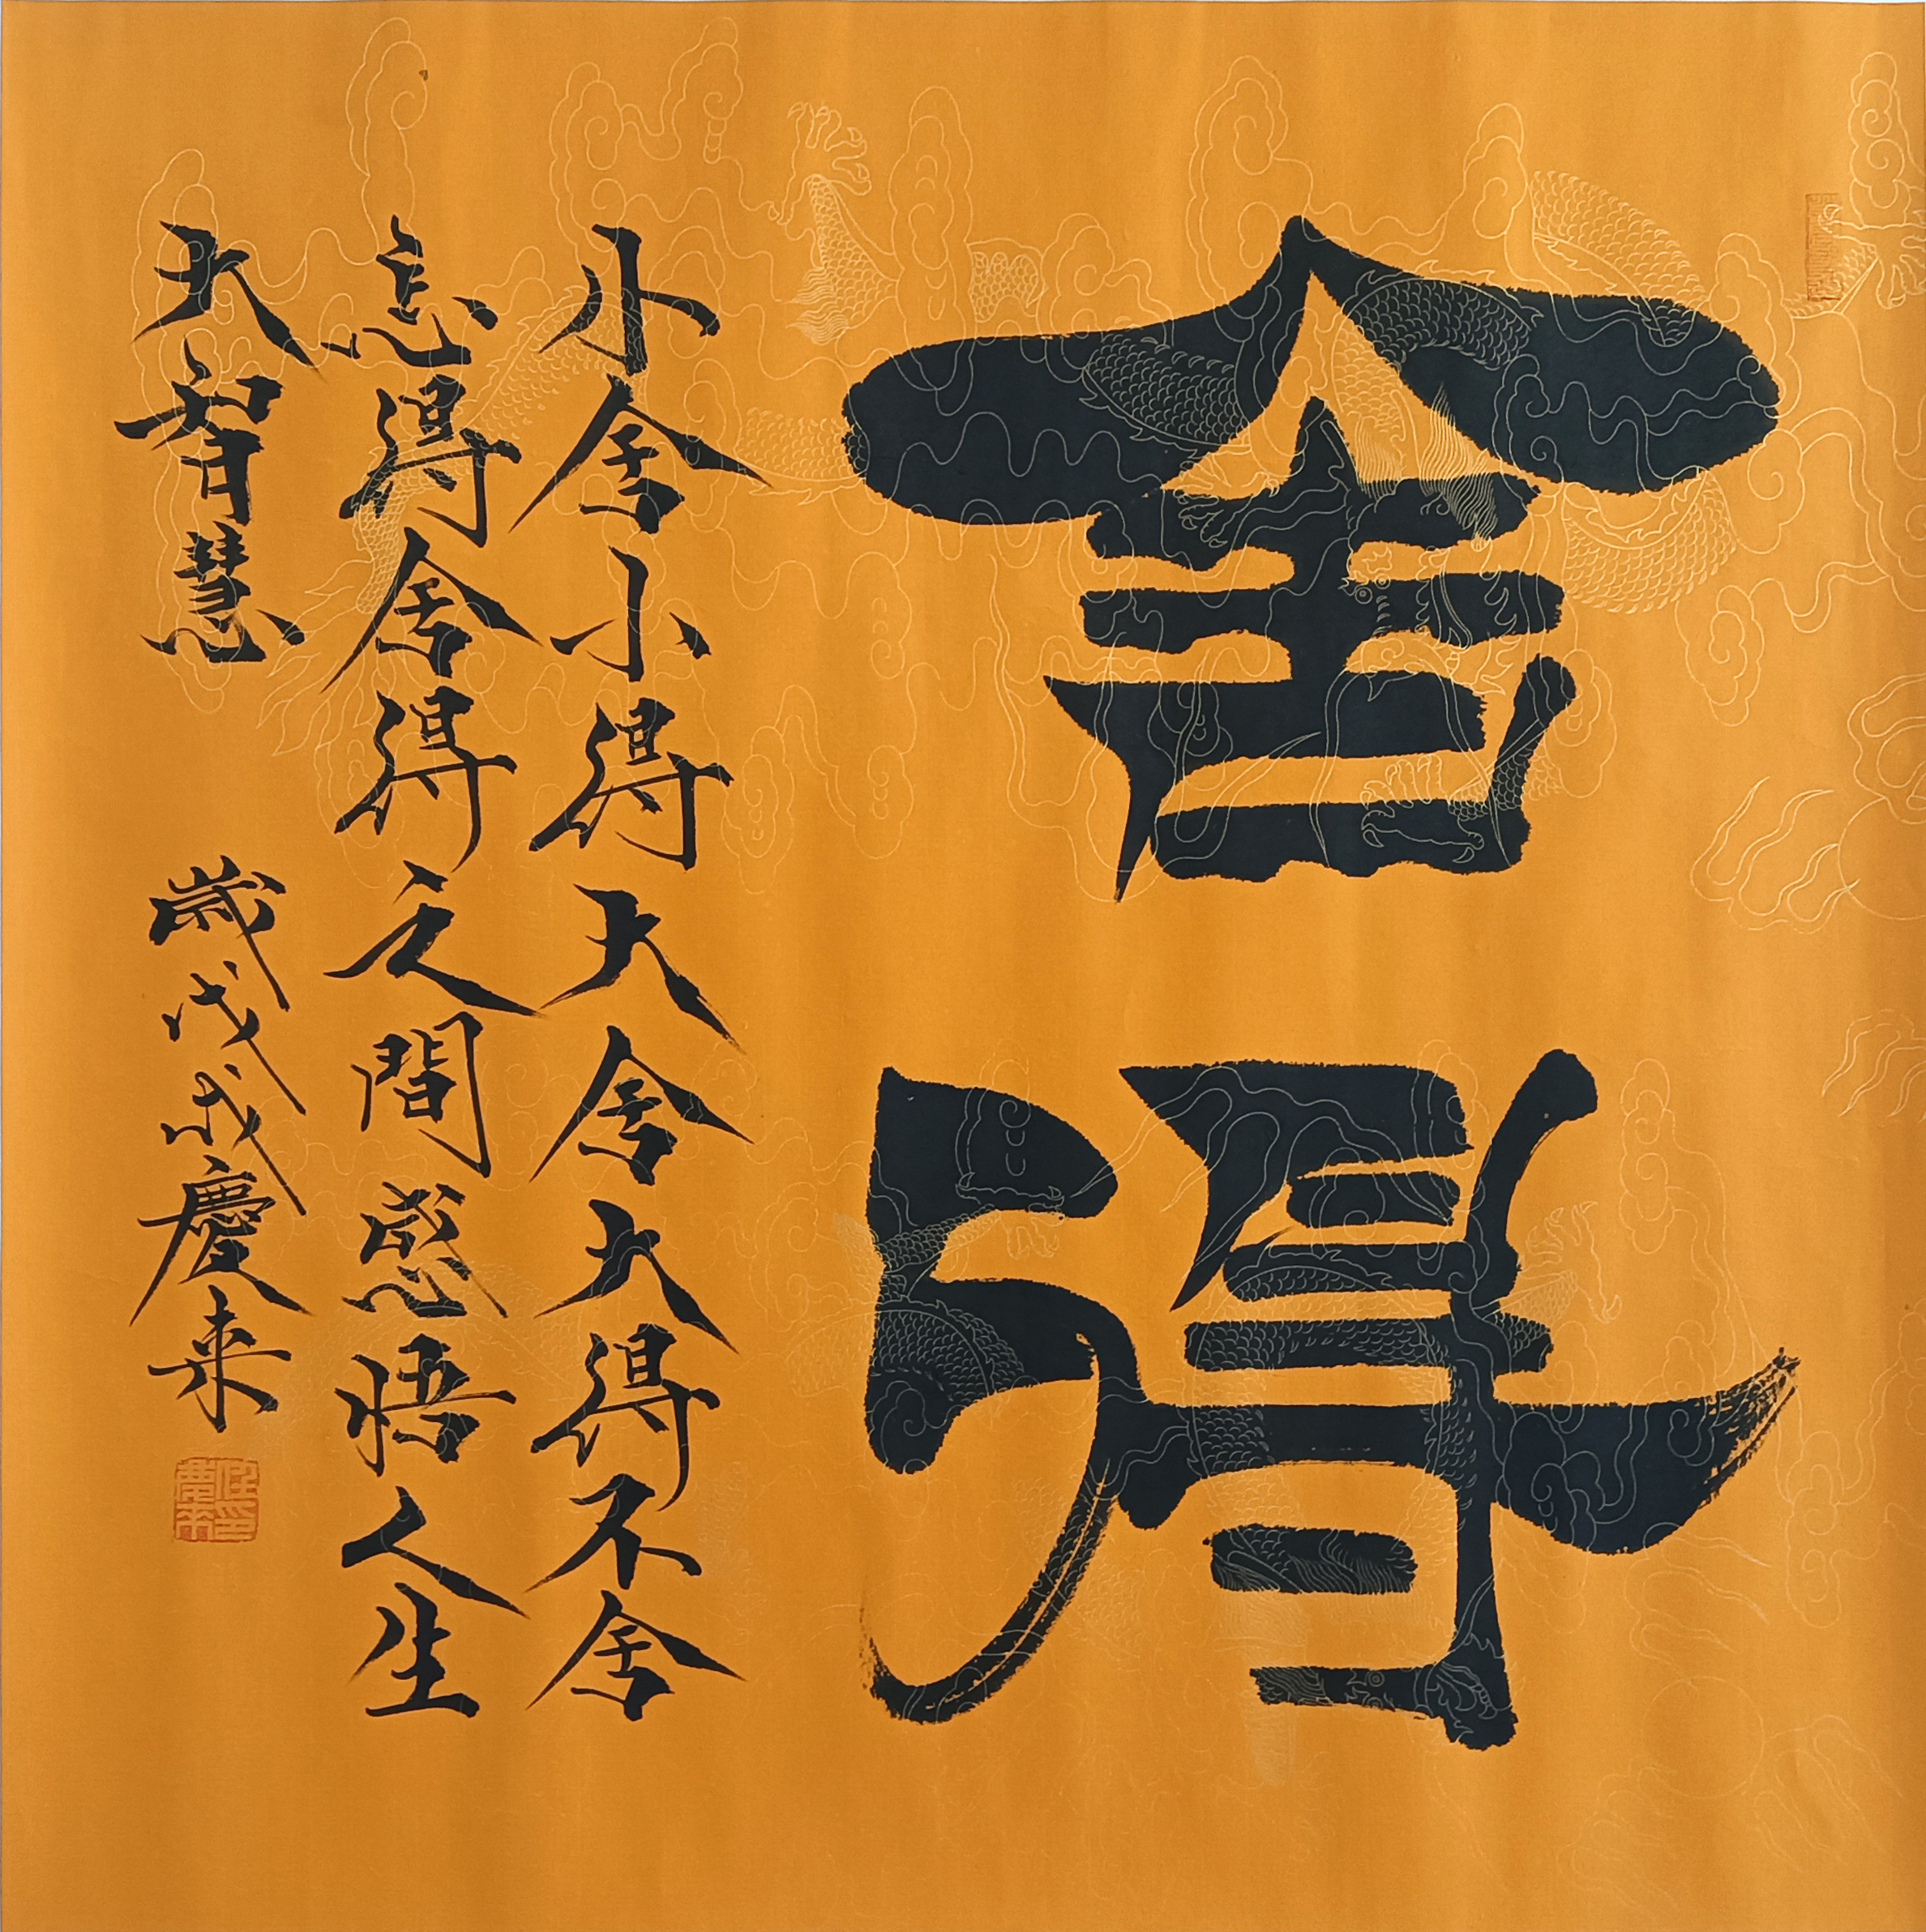 舍得
小舍小得大舍大得不舍
怎得舍得之間感悟人生
大智慧 歲戊戌慶来
任印慶来